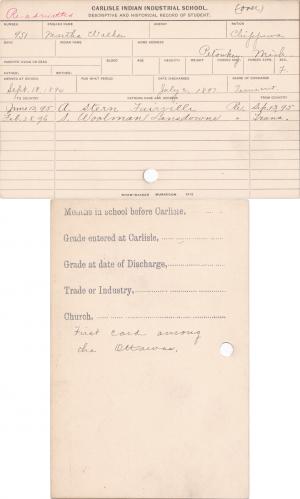 Re-admitted
CARLISLE INDIAN INDUSTRIAL SCHOOL. (over)
DESCRIPTIVE AND HISTORICAL RECORD OF STUDENT.
NUMBER ENGLISH NAME AGENCY NATION
951 Martha Walker Chippewa
BAND INDIAN NAME HOME ADDRESS
Petoskey, Mich
PARENTS LIVING OR DEAD BLOOD AGE HEIGHT WEIGHT FORCED INSP. FORCED EXPR. SEX
FATHER, MOTHER, F.
ARRIVED AT SCHOOL FOR WHAT PERIOD DATE DISCHARGED CAUSE OF DISCHARGE
Sept. 18, 189 July 2, 1897
TO COUNTRY PATRONS NAME AND ADDRESS FROM COUNTRY
June 12, 95 A. Stern Sep. 13, 95
Feb. 1896 S. Woolman Lansdowne " Trans.
Months in school before Carlisle,
Grade entered at Carlisle,
Grade at date of Discharge,
Trade or Industry,
Church.
First card among
the Ottawas.